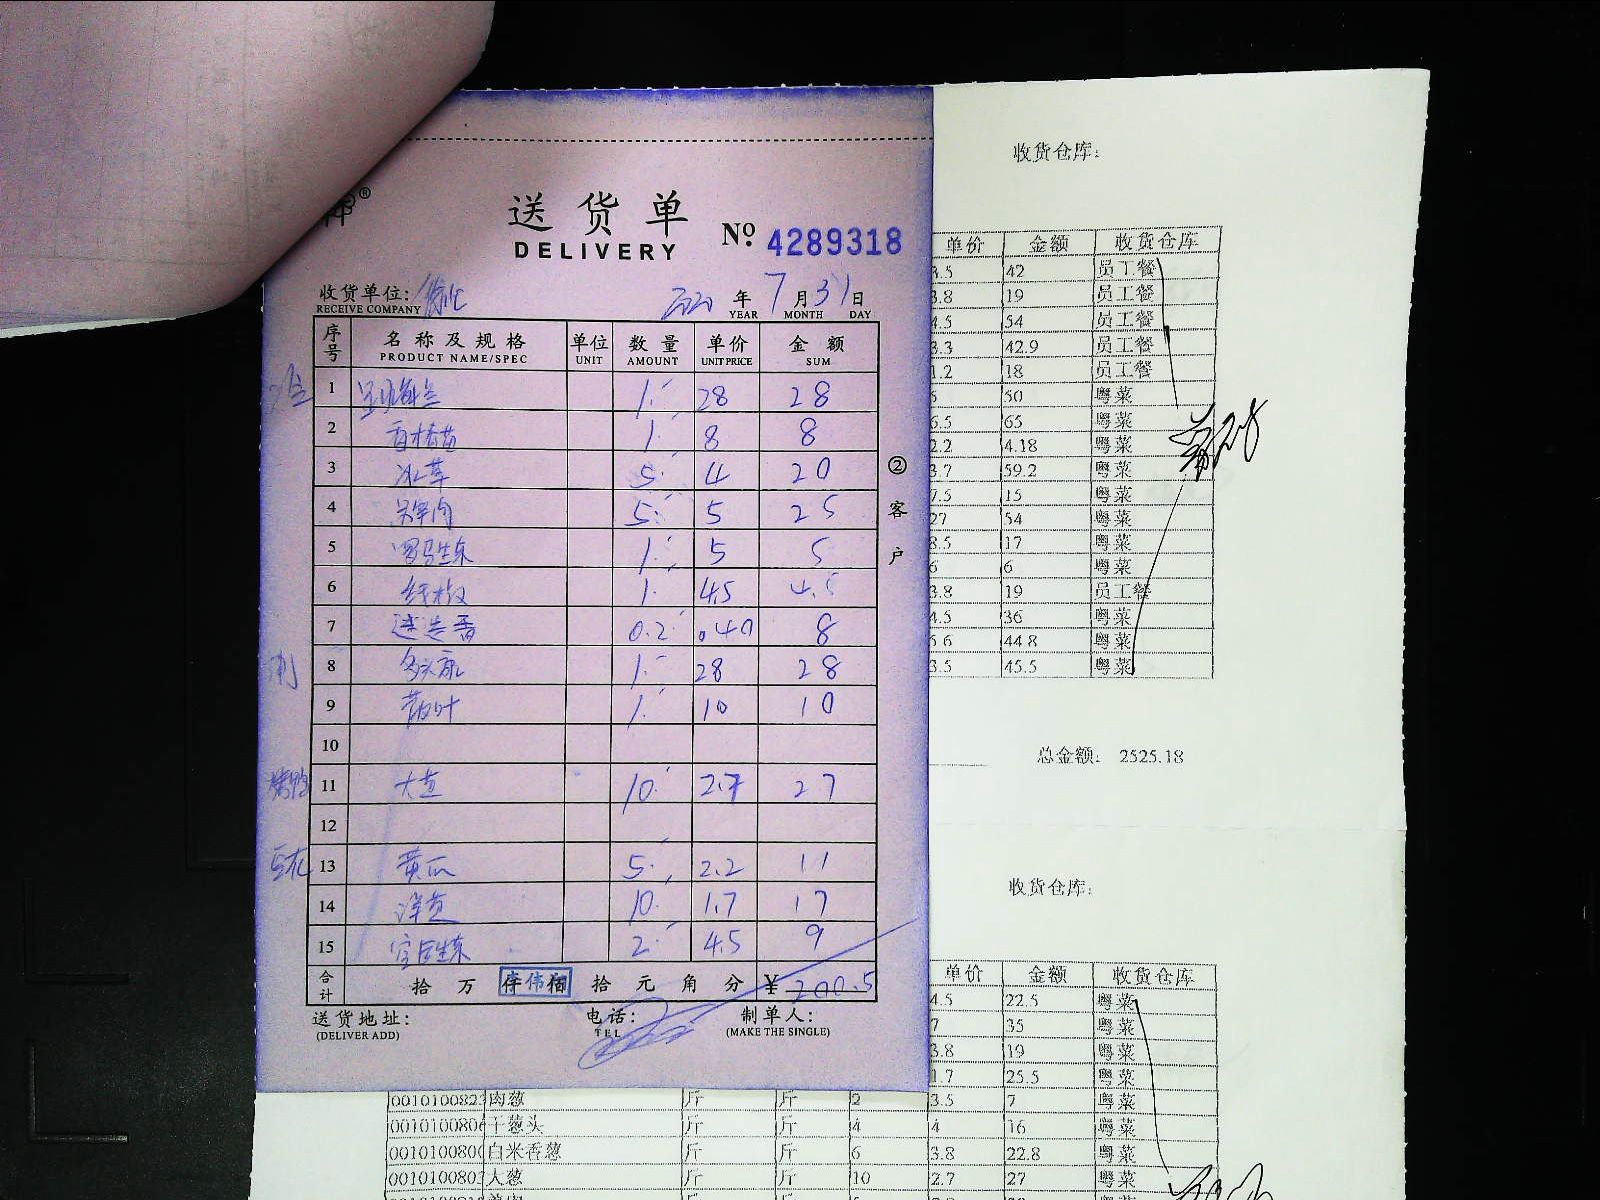 送货单
DELIVERY
No 4289318
收货单位:
RECEIVE COMPANY
2020 年 7 月 31 日
YEAR MONTH DAY
序号 名称及规格 单位 数量 单价 金额
PRODUCT NAME/SPEC UNIT AMOUNT UNIT PRICE SUM
1 1 28 28
2 香椿苗 1 8 8
3 冰草 5 4 20
4 5 5 25
5 罗马生菜 1 5 5
6 线椒 1 4.5 4.5
7 迷迭香 0.2 40 8
8 1 28 28
9 1 10 10
10
11 大葱 10 2.7 27
12
13 黄瓜 5 2.2 11
14 洋葱 10 1.7 17
15 2 4.5 9
合计 拾 万 拾 元 角 分 ¥ 200.5
送货地址: 电话: 制单人:
(DELIVER ADD) TEL (MAKE THE SINGLE)
②客户
收货仓库:
单价 金额 收货仓库
3.5 42 员工餐
3.8 19 员工餐
4.5 54 员工餐
3.3 42.9 员工餐
1.2 18 员工餐
5 50 粤菜
6.5 65 粤菜
2.2 4.18 粤菜
3.7 59.2 粤菜
7.5 15 粤菜
27 54 粤菜
8.5 17 粤菜
6 6 粤菜
3.8 19 员工餐
4.5 36 粤菜
5.6 44.8 粤菜
3.5 45.5 粤菜
总金额: 2525.18
收货仓库:
单价 金额 收货仓库
4.5 22.5 粤菜
7 35 粤菜
3.8 19 粤菜
1.7 25.5 粤菜
0010100823 肉葱 斤 斤 2 3.5 7 粤菜
0010100806 干葱头 斤 斤 4 4 16 粤菜
0010100800 白米香葱 斤 斤 6 3.8 22.8 粤菜
0010100803 大葱 斤 斤 10 2.7 27 粤菜